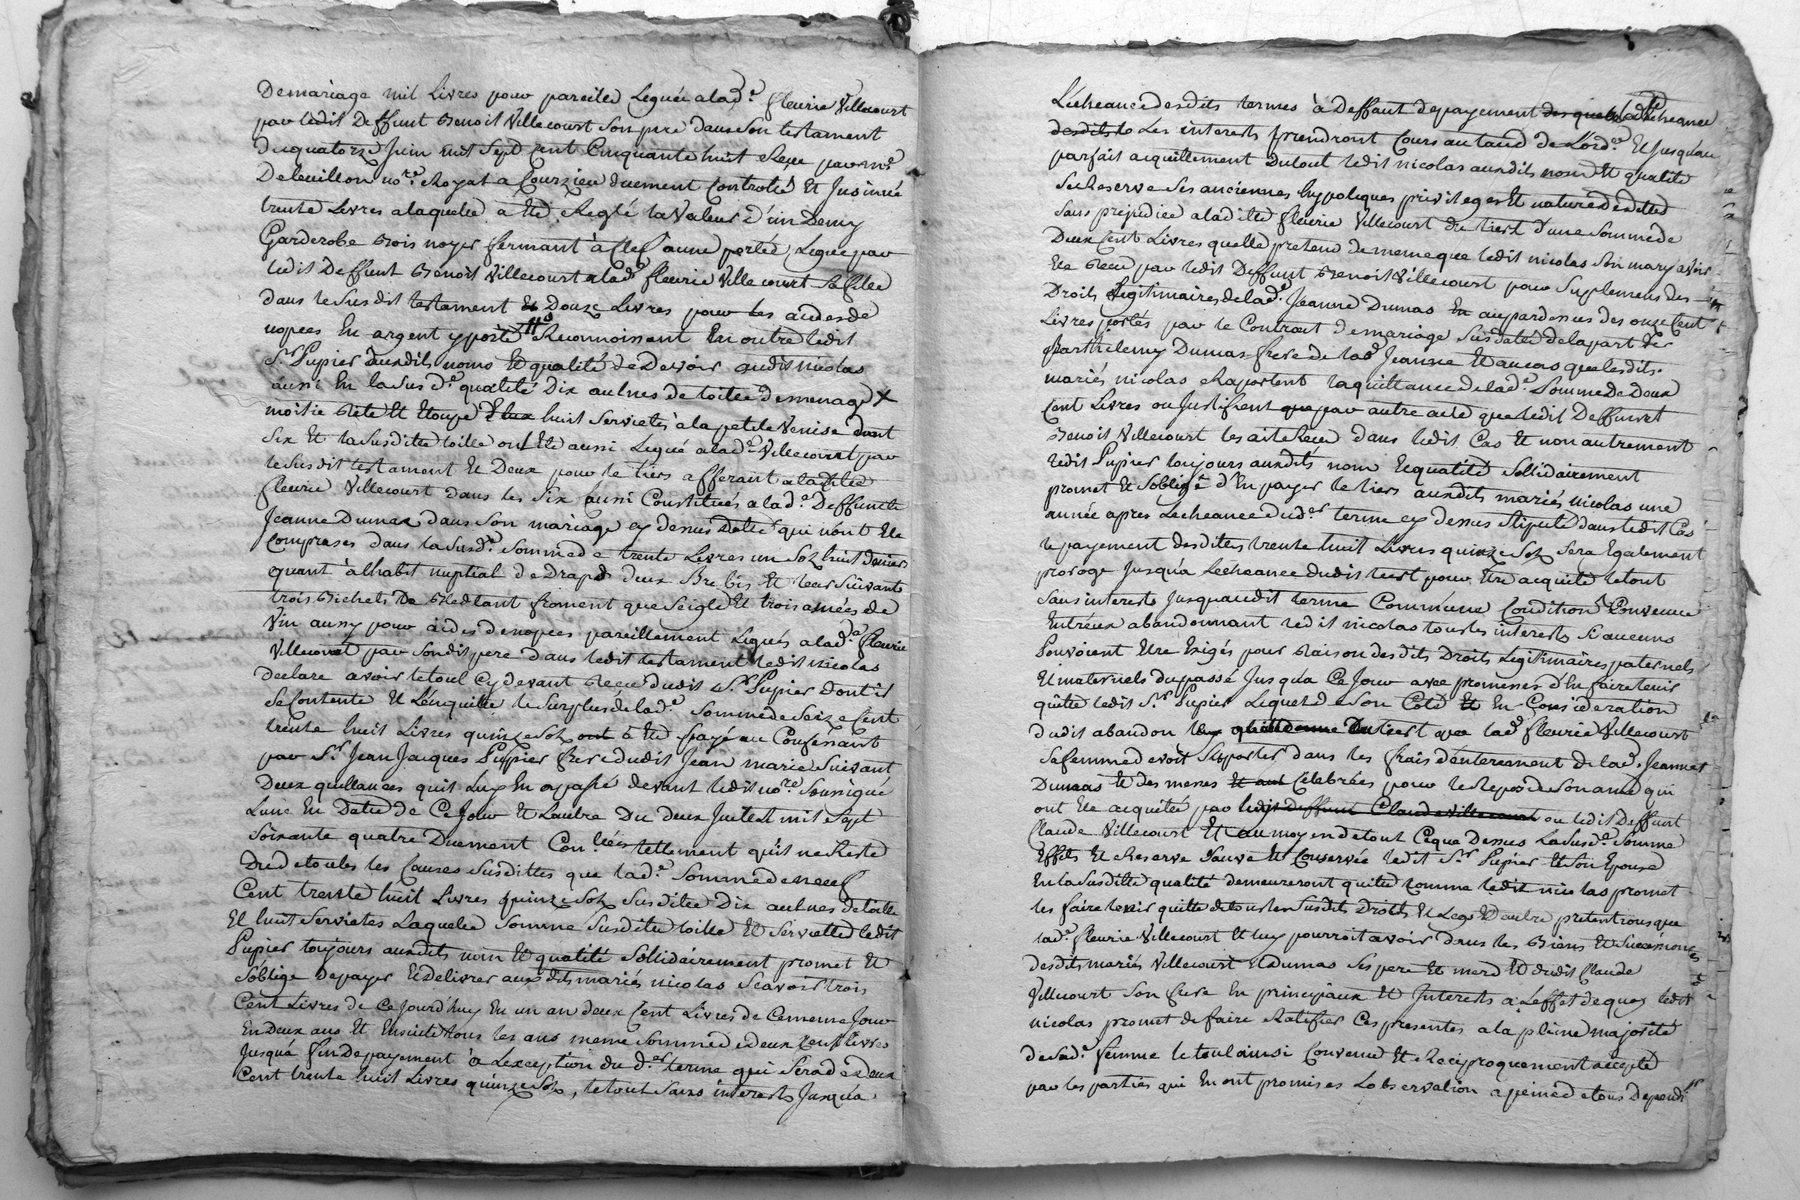 De mariage mil Livres pour pareille Leguée a lad.e fleurie Villecourt
par ledit Deffunt Benoit Villecourt son pere dans son testament
du quatorze Juin mil sept cent Cinquante huit Reçu par m.e
Deleuillon no.re Royal a Courzieu duement Controllé Et Insinué
trente Livres a laquelle a été Reglé la Valeur d'un Demy
Garderobe Bois noyer fermant à Clef a une portée, Leguée par
ledit Deffunt Benoit Villecourt a lad.e fleurie Villecourt sa fille
dans le susdit testament Et Douze Livres pour les aides de
nopces En argent y porté # Reconnoissant En outre ledit
S.r Pupier auxdits noms Et qualité de Devoir audit nicolas
aussi En la sus d.e qualité Dix aulnes de toile de menage X
moitié Rete Et Etoupe huit Serviettes à la petite Venise dont
Six Et la susditte toille ont Eté aussi Legué a lad.e Villecourt par
le susdit testament Et Deux pour le tiers afferant a la ditte
fleurie Villecourt dans les Six aussi Constitués a lad.e Deffunte
Jeanne Dumas dans son mariage cy dessus Datté qui n'ont Eté
Comprises dans la susd.e Somme de trente Livres un Sol huit denier
quant à l'habit nuptial de Drap deux Brebis Et leur Suivant
trois Bichets De Bled tant froment que Seigle Et trois année de
Vin aussy pour aides de nopces pareillement Legués a lad.e fleurie
Villecourt par son dit pere dans ledit testament ledit nicolas
declare avoir le tout Cy devant Reçu dudit S.r Pupier dont il
Se Contente Et L'en quitte le Surplus de lad.e Somme de Seize Cent
trente huit Livres quinze Sols a Eté payé au Confessant
par S.r Jean Jacques Pupier frere dudit Jean marie Suivant
Deux quittances qu'il Luy En a passé devant ledit no.re Soussigné
Lune En Datte de Ce Jour Et Lautre Du deux Juillet mil Sept
Soixante quatre Duement Con.llées tellement qu'il ne Reste
Du de toutes les Causes Susdittes que lad.e Somme de neuf
Cent trente huit Livres quinze Sols Susditte Dix aulnes de toille
Et huit Serviettes Laquelle Somme Susditte toille Et Serviette ledit
Pupier toujours auxdits nom Et qualité Sollidairement promet Et
Soblige De payer Et delivrer aux dits mariés nicolas Scavoir trois
Cent Livres de Ce Jourd'huy En un an deux Cent Livres de Ce meme Jour
En Deux ans Et Ensuitte tous les ans meme Somme de deux Cent livres
Jusqu'a Fin De payement à L'exception du d.er terme qui Sera de deux
Cent trente huit Livres quinze Sols, le tout Sans interests Jusqu'a
L'echeance des dits termes à Deffaut de payement des quels a L'echeance
des dits Les interests prendront Cours au taud de L'ord.e Et Jusqu'au
parfait acquittement du tout ledit nicolas auxdits nom Et qualité
Se Reserve Ses anciennes hyppoteques privileges Et nature de dette
Sans prejudice a la ditte fleurie Villecourt du tiers d'une Somme de
Deux Cent Livres quelle pretend de meme que ledit nicolas Son mary avoir
Eté Reçu par ledit Deffunt Benoit Villecourt pour Suplement des
Droits Legitimaires de lad.e Jeanne Dumas En au par dessus des onze Cent
Livres portés par le Contract de mariage Susdatté de la part de
Barthelemy Dumas frere de lad.e Jeanne Et au cas que lesdits
mariés nicolas Raportent la quittance de lad.e Somme De Deux
Cent Livres ou Justifient par autre acte que ledit Deffunt
Benoit Villecourt les aite Reçu dans ledit Cas Et non autrement
ledit Pupier toujours auxdits nom Et qualité Sollidairement
promet Et Soblige d'En payer le tiers auxdits mariés nicolas une
année apres L'echeance dud.er terme cy dessus Stipulé dans ledit Cas
le payement desdittes trente huit Livres quinze Sols Sera Egalement
prorogé Jusqu'a L'echeance dudit tiers pour Etre acquitté le tout
Sans interests Jusqu'audit terme Comme une Condition Convenue
Entr'eux abandonnant ledit nicolas tous les interests Si aucuns
Pouvoient Etre Exigés pour Raison des dits Droits Legitimaires paternels
Et maternels du passé Jusqu'a Ce Jour avec promesses d'En faire tenir
quitte ledit S.r Pupier Lequel de Son Côté En Consideration
dudit abandon tiers que lad.e fleurie Villecourt
Sa femme devoit Supporter dans les frais d'enterrement de lad.e Jeanne
Dumas Et des messes Celebrées pour le Repos de Son ame qui
ont Eté acquittés par ledit deffunt Claude Villecourt ou ledit Deffunt
Claude Villecourt Et au moyen de tout Ce que Dessus La Susd.e Somme
Effets Et Reserve Sauve Et Conservée ledit S.r Pupier Et Son Epouse
En la Susditte qualité demeureront quitte Comme ledit nicolas promet
les faire tenir quitte de tous les Susdits Droits Et Legs Et autre pretentions que
lad.e fleurie Villecourt Et luy pourroit avoir dans les Biens Et Successions
desdits mariés Villecourt Et Dumas Ses pere Et mere Et dudit Claude
Villecourt Son frere En principaux Et Interests a L'effet de quoy ledit
nicolas promet de faire Ratifier Ces presentes a la pleine majorité
de Sad.e femme le tout ainsi Convenu Et Reciproquement accepté
par les parties qui En ont promis es Lobservation a peine de tous Depend.s